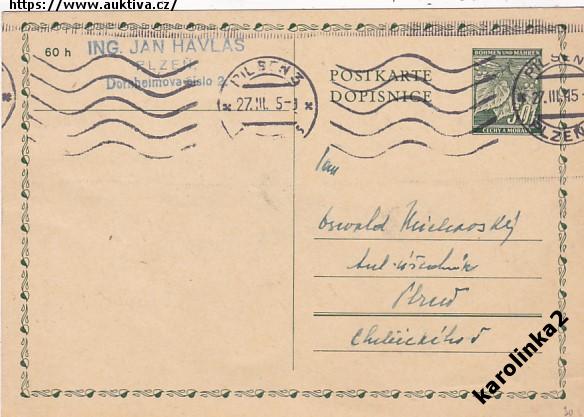 https://www.auktiva.cz/
60 h
ING. JAN HAVLAS
PLZEŇ
Dornheimova číslo 2
PILSEN 3
27.III.45-
POSTKARTE
DOPISNICE
BÖHMEN UND MÄHREN
ČECHY A MORAVA
PILSEN
27.III.45-
PLZEŇ
Pan
Oswald
Plzeň
karolinka2